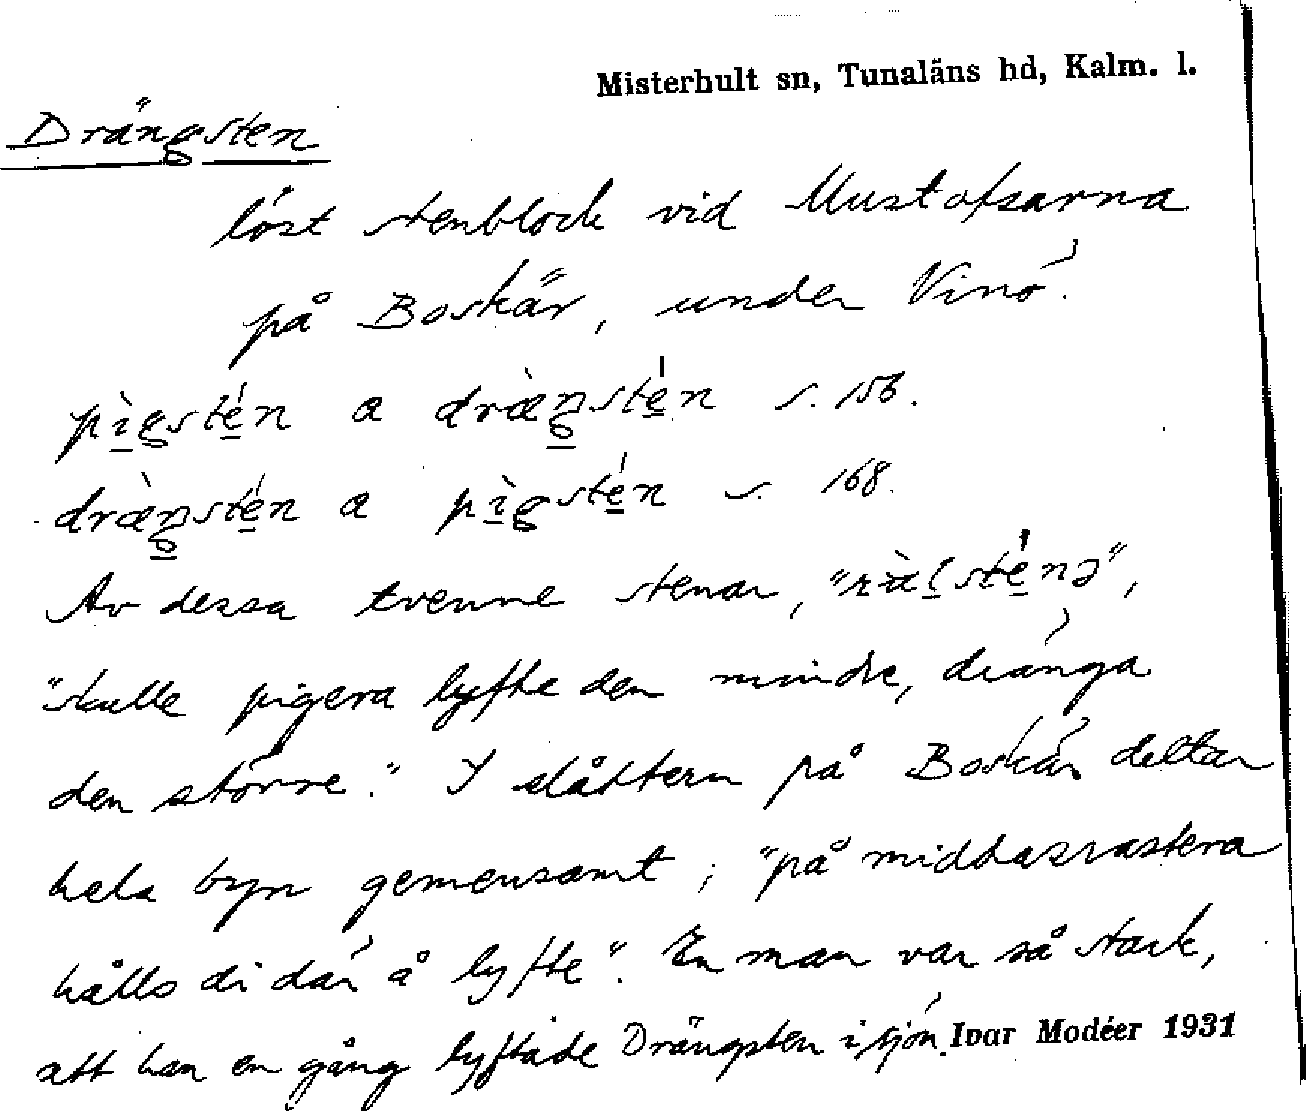 Misterhult sn, Tunaläns hd, Kalm. l.
Drängsten
löst stenblock vid Mustofsarna
på Boskär, under Vinö.
pìgstén a dràŋstén s. 156.
dràŋstén a pìgstén s. 168.
Av dessa tvenne stenar, "
"skulle pigera lyfte den mindre, dränga
den större." I slåttern på Boskär deltar
hela byn gemensamt; "på middasrastera
hålls di där å lyfte". En man var så stark,
att han en gång lyftade Drängsten i sjön.
Ivar Modéer 1931